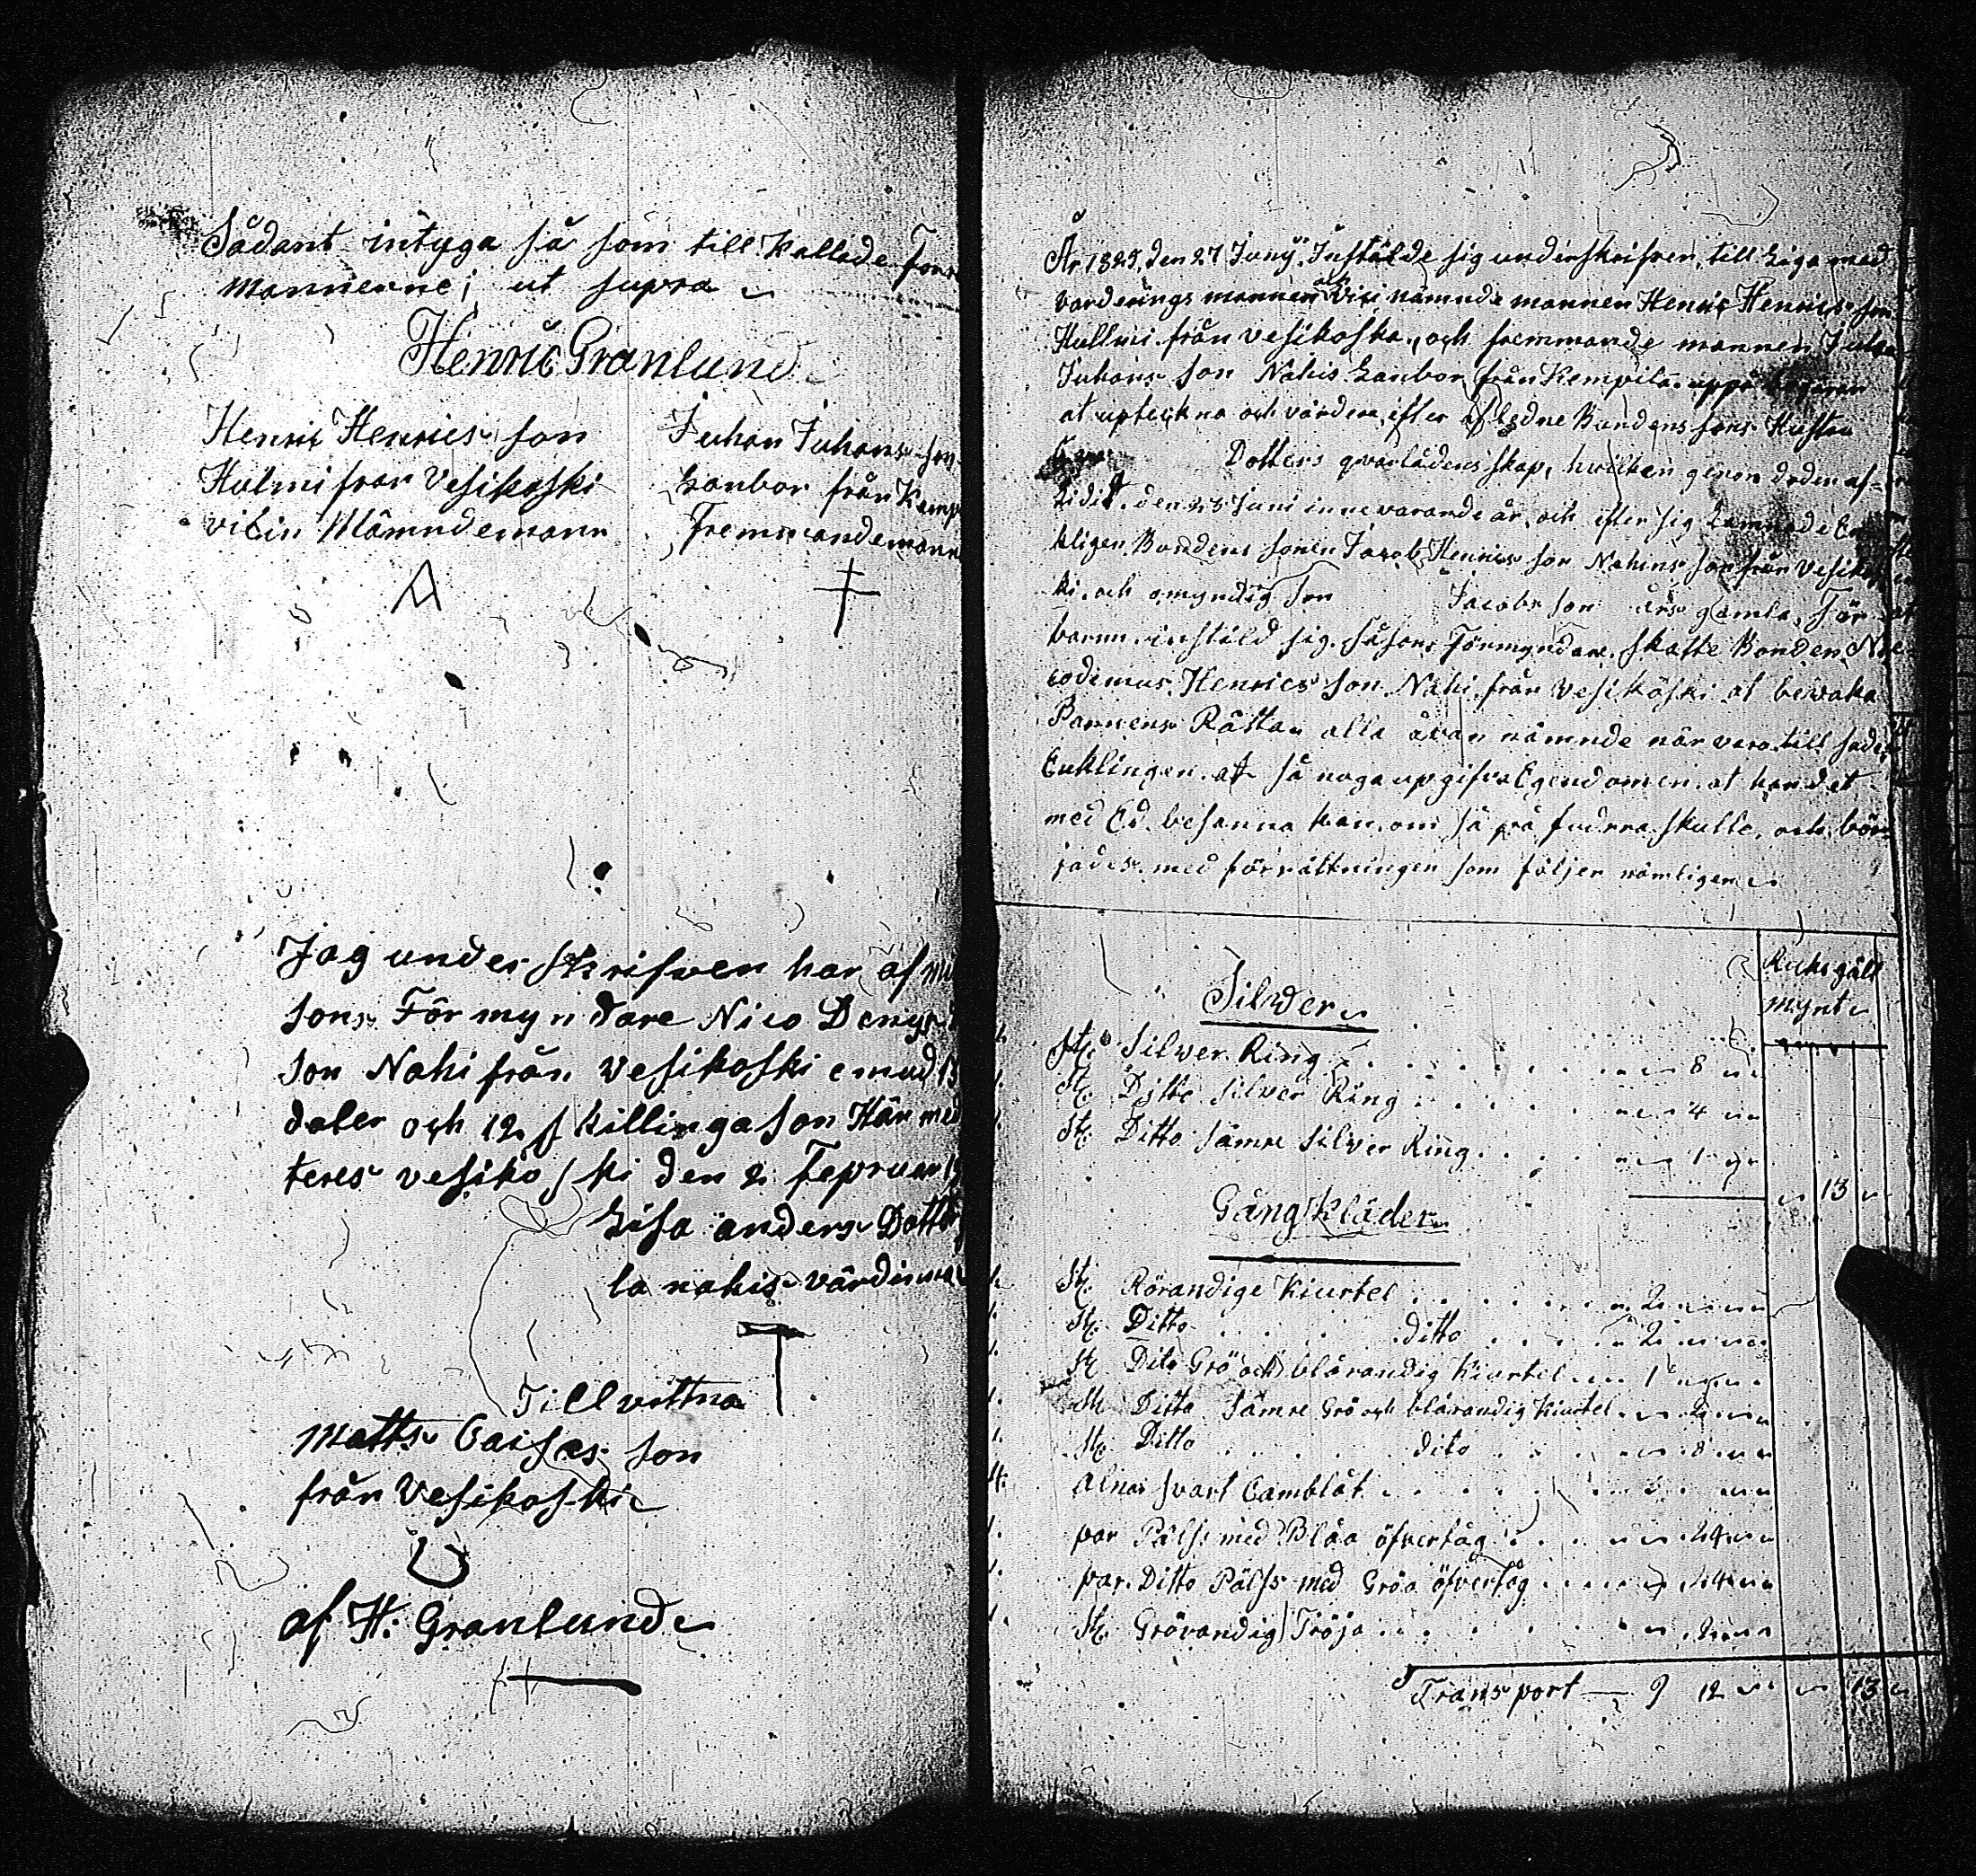 Sådant intyga så som till Kallade
mannerne; ut supra
Henric Granlund
Henric Henrics son
Hulmi fran Vesikoski
vicin Nämndemann
Juhan Juhans son
Lanbor från Kemp
Fremmandemann
Jag under skrifwen har af
sons Förmyndare Nico Demus
son Nahi från Vesikoski emud
daler och 12 skillinga son Här med
teres vesikoski den 2 Fepruar
Lisa anders Dotter
la nahis värdinna
Till vittna
Matts Caisas son
från Vesikoski
af H. Granlund
År 1825, den 27 Juny, Instälde sig underskrifven, till Liga med
varderings mannen och Vici nämnde mannen Henric Henrics son
Hullmi från vesikoska, och fremmande mannen Juhan
Juhans son Nahis Lanbor från Kempilä uppå
at upteckna och värdera efter afledne Bondens sons Hustru
Dotters qvarlådenskap, hvilken genom döden af-
Lidit den 23 Juni innevarande år, och efter sig Lemnade En
kligen Bondens sonen Jacob Henrics son Nahins son från Vesikos
ki, och omyndig son Jacobs son års gamla. För
barnn instäld sig såsom Förmyndare skatte Bonden Ni
codimus Henrics son Nahi från Vesikoski at bewaka
Barnens Rätta, alla åvan nämnde när vara till sades
Enklingen at så noga upgifva Egendomen at han det
med Ed besanna kan om så på fudrra skulle, och bör
jades med förrättningen som följer nämligen
Ricksgälls
mynt
Silwer
St. Silver Ring 8
St. Ditto Silver Ring 4
St. Ditto sämre Silver Ring 1
13
Gång Kläder
1. St. Rörandige Kiurtel 2
1. St. Ditto ditto 2
1. St. Dito Grö och blårandig Kiurtel 1
1. St. Ditto Sämre Grö och blårandig Kiurtel 2
1. St. Ditto dito 8
4. Alnar svart Camblåt
1. par Päls med Blåa öfvertåg 24
1. par Ditto Pälss med Gröa öfvertåg
1. St. Grörandig Tröja
Transport 9 12 13